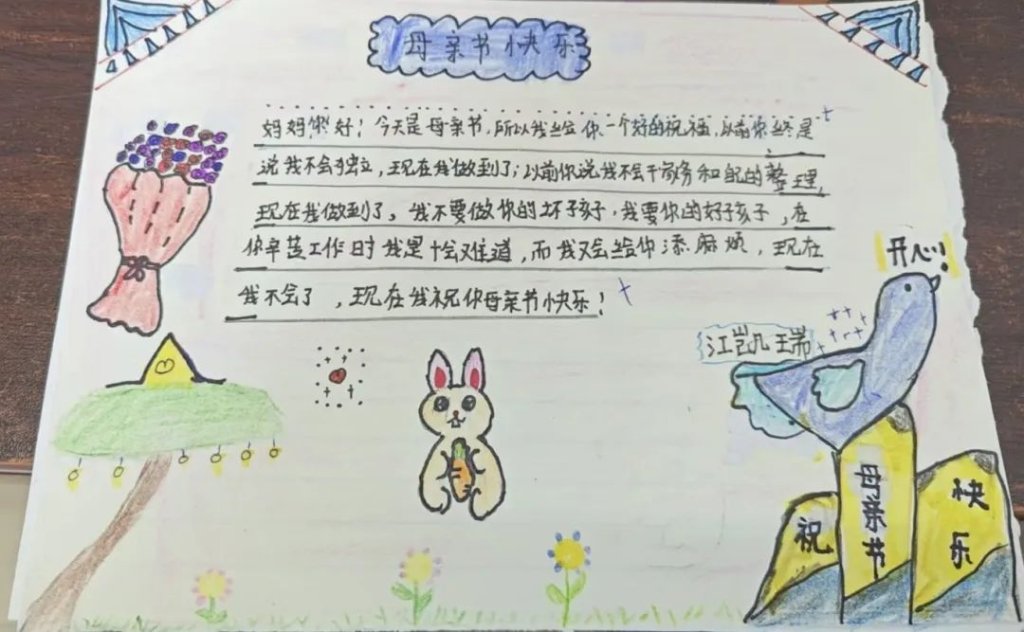 母亲节快乐
妈妈你好！今天是母亲节，所以我给你一个好的祝福，以前你总是
说我不会独立，现在我做到了；以前你说我不会干家务和自己的整理，
现在我做到了。我不要做你的坏孩子，我要你的好子孩子，在
你辛苦工作时我是会难道，而我又会给你添麻烦，现在
我不会了，现在我祝你母亲节快乐！
开心！
江凯瑞
祝
母亲节
快乐